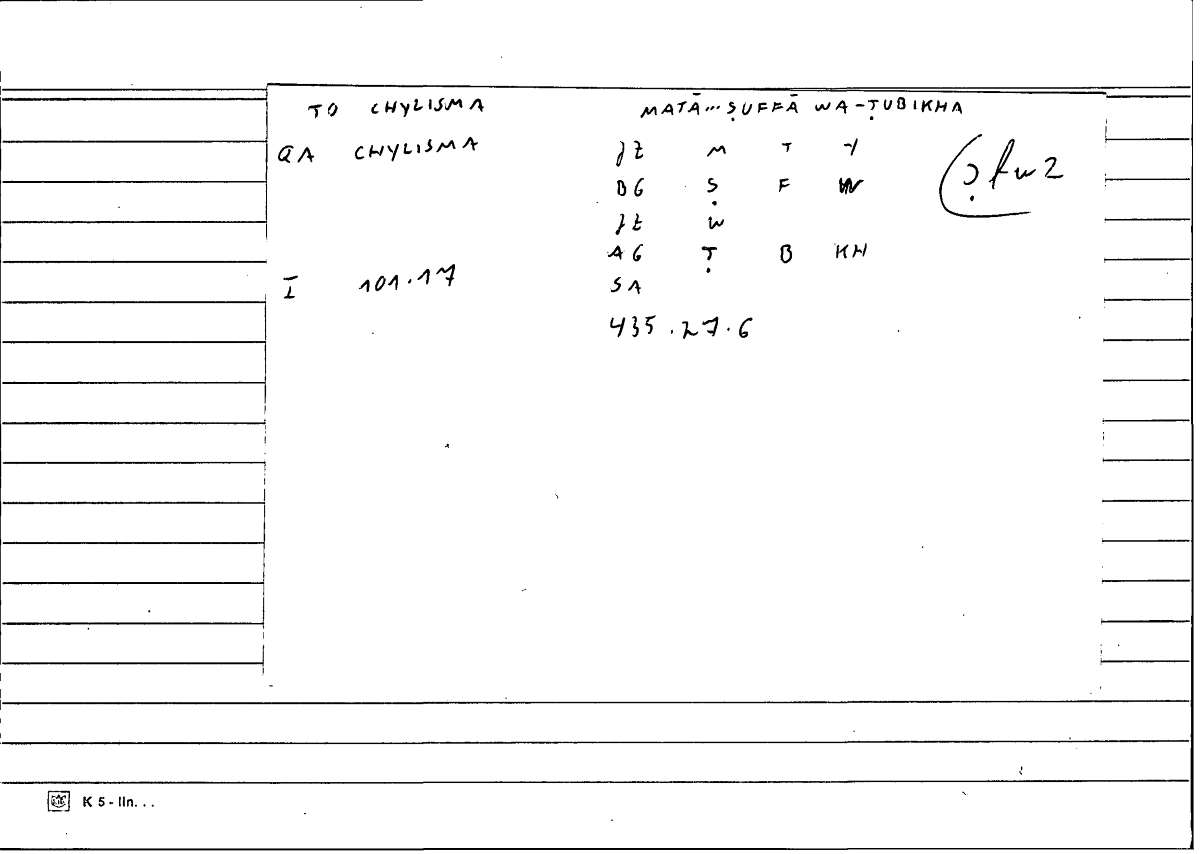 TO CHYLISMA MATĀ... ṢUFFĀ WA-ṬUBIKHA
QA CHYLISMA JZ M T Y
BG Ṣ F W
JZ W
AG Ṭ B KH
I 101.17 SA
435.27.6
K 5 - lin. . .